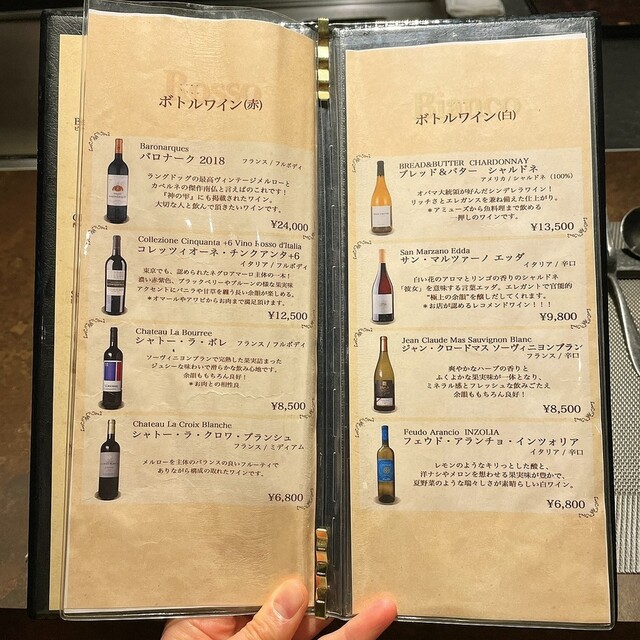 Rosso
ボトルワイン(赤)
Baronarques
バロナーク 2018
フランス / フルボディ
ラングドッグの最高ヴィンテージメルローと
カベルネの傑作南仏と言えばのこれです！
『神の雫』にも掲載されたワイン。
大切な人と飲んで頂きたいワインです。
¥24,000
Collezione Cinquanta +6 Vino Rosso d'Italia
コレッツィオーネ・チンクアンタ+6
イタリア / フルボディ
東京でも、認められたネグロアマーロ主体の一本！
濃い赤紫色、ブラックベリーやプルーンの様な果実味
アクセントにバニラや甘草を纏う良い余韻が楽しめる。
＊オマールやアワビからお肉まで満足頂けます。
¥12,500
Chateau La Bourree
シャトー・ラ・ボレ
フランス / フルボディ
ソーヴィニヨンブランで完熟した果実詰まった
ジュシーな味わいで滑らかな飲み心地です。
余韻ももちろん良好！
＊お肉との相性良
¥8,500
Chateau La Croix Blanche
シャトー・ラ・クロワ・ブランシュ
フランス / ミディアム
メルローを主体のバランスの良いフルーティで
ありながら構成の取れたワインです。
¥6,800
Bianco
ボトルワイン(白)
BREAD&BUTTER CHARDONNAY
ブレッド&バター シャルドネ
アメリカ / シャルドネ (100%)
オバマ大統領が好んだシンデレラワイン！
リッチさとエレガンスを兼ね備えた仕上がり。
＊アミューズから魚料理まで飲める
一押しのワインです。
¥13,500
San Marzano Edda
サン・マルツァーノ エッダ
イタリア / 辛口
白い花のアロマとリンゴの香りのシャルドネ
「彼女」を意味する言葉エッダ。エレガントで官能的
"極上の余韻"を醸しだしてくれます。
＊お店が認めるレコメンドワイン！！！
¥9,800
Jean Claude Mas Sauvignon Blanc
ジャン・クロードマス ソーヴィニヨンブラン
フランス / 辛口
爽やかなハーブの香りと
ふくよかな果実味が一体となり、
ミネラル感とフレッシュな飲みごたえ
余韻ももちろん良好！
¥8,500
Feudo Arancio INZOLIA
フェウド・アランチョ・インツォリア
イタリア / 辛口
レモンのようなキリっとした酸と、
洋ナシやメロンを想わせる果実味が豊かで、
夏野菜のような瑞々しさが素晴らしい白ワイン。
¥6,800